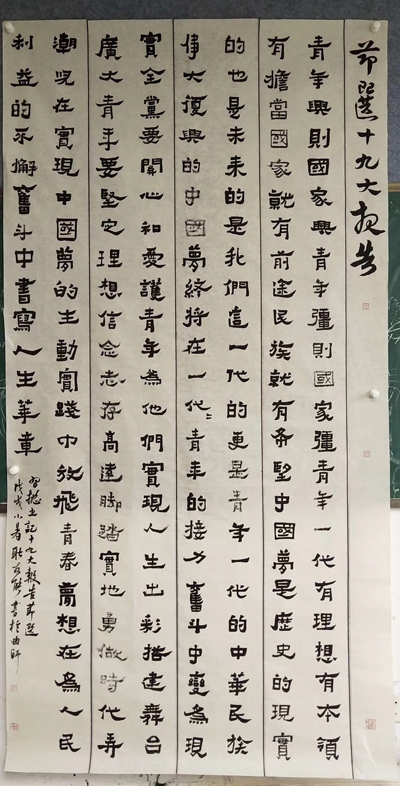 節選十九大报告
青年興則國家興青年彊則國家彊青年一代有理想有本領
有擔當國家就有前途民族就有希望中國夢是歷史的現實
的也是未来的是我們這一代的更是青年一代的中華民族
偉大復興的中國夢終将在一代〻青年的接力奮斗中變為現
實全黨要關心和愛護青年為他們實現人生出彩搭建舞台
廣大青年要堅定理想信念志存高遠脚踏實地勇做時代弄
潮児在實現中國夢的生動實踐中放飛青春夢想在為人民
利益的不懈奮斗中書寫人生華章
習總书記十九大報告節選
戊戌小暑書於曲師